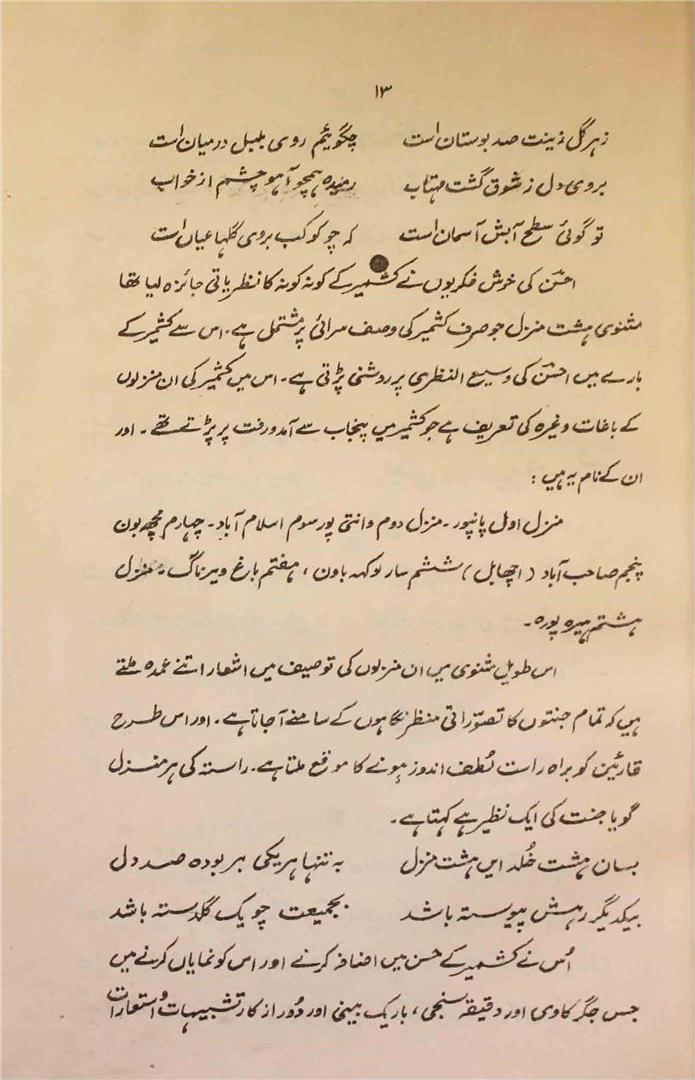 ۱۳
زہر گل زینت صد بوستان است چگویئم روی بلبل درمیان است
بروی دل ز شوق گشت مہتاب رمیدہ ہمچو آہو چشم از خواب
تو گوئی سطح آبش آسمان است کہ چو کوکب بروی گلہا عیان است
احسنؔ کی خوش فکریوں نے کشمیر کے کونہ کونہ کا نظریاتی جائزہ لیا تھا
مثنوی ہشت منزل جو صرف کشمیر کی وصف سرائی پر مشتمل ہے۔ اس سے کشمیر کے
بارے میں احسنؔ کی وسیع النظری پر روشنی پڑتی ہے۔ اس میں کشمیر کی ان منزلوں
کے باغات وغرہ کی تعریف ہے جو کشمیر میں پنجاب سے آمد و رفت پر پڑتے تھے۔ اور
ان کے نام یہ ہیں:
منزل اول پانپور۔ منزل دوم وانتی پور سوم اسلام آباد۔ چہارم مچھ بون
پنجم صاحب آباد (اچھابل) ششم سار لوکہہ باون، ہفتم باغ ویرناگ۔ منزل
ہشتم ہیرہ پورہ۔
اس طویل مثنوی میں ان منزلوں کی توصیف میں اشعار اتنے عمدہ ملتے
ہیں کہ تمام جنتوں کا تصوّراتی منظر نگاہوں کے سامنے آجاتا ہے۔ اور اس طرح
قارئین کو براہ راست لُطف اندوز ہونے کا موقع ملتا ہے۔ راستہ کی ہر منزل
گویا جنت کی ایک نظیر ہے کہتا ہے۔
بسان ہشت خُلد ایں ہشت منزل بہ تنہا ہر یکی بر بودہ صد دل
بیکدیگر رہش پیوستہ باشد بجمیعت چو یک گلدستہ باشد
اُس نے کشمیر کے حسن میں اضافہ کرنے اور اس کو نمایاں کرنے میں
جس جگر کاوی اور دقیقہ سنجی، باریک بینی اور دُور از کار تشبیہات و استعارات